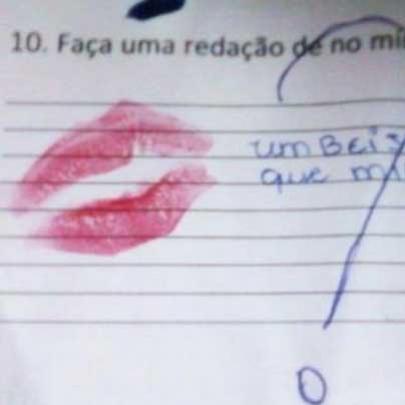 10. Faça uma redação de no mí
um Beij
que mi
0